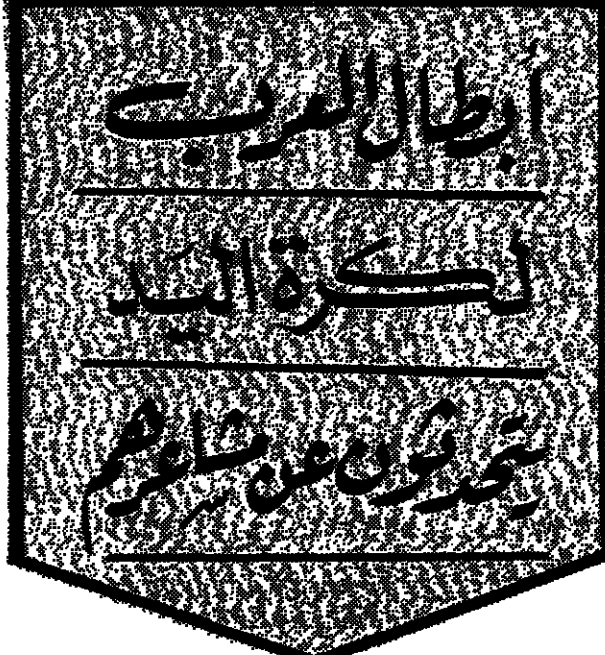 أبطال العرب
لكرة اليد
يتحدثون عن مشاعرهم